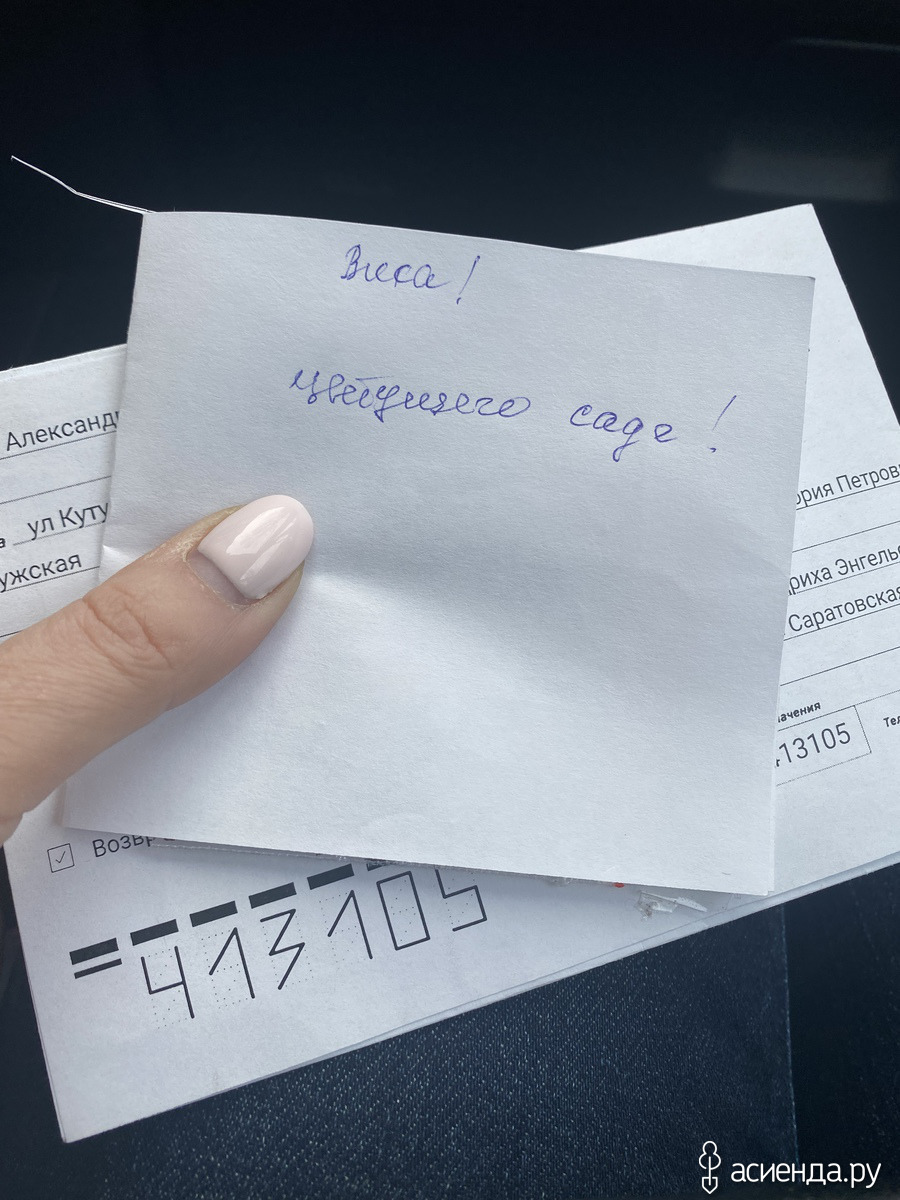 Вика!
цветущего сада!
Александ
ул Куту
ужская
ория Петров
риха Энгель
Саратовская
ачения
Тел
13105
Возвр
413105
асиенда.ру